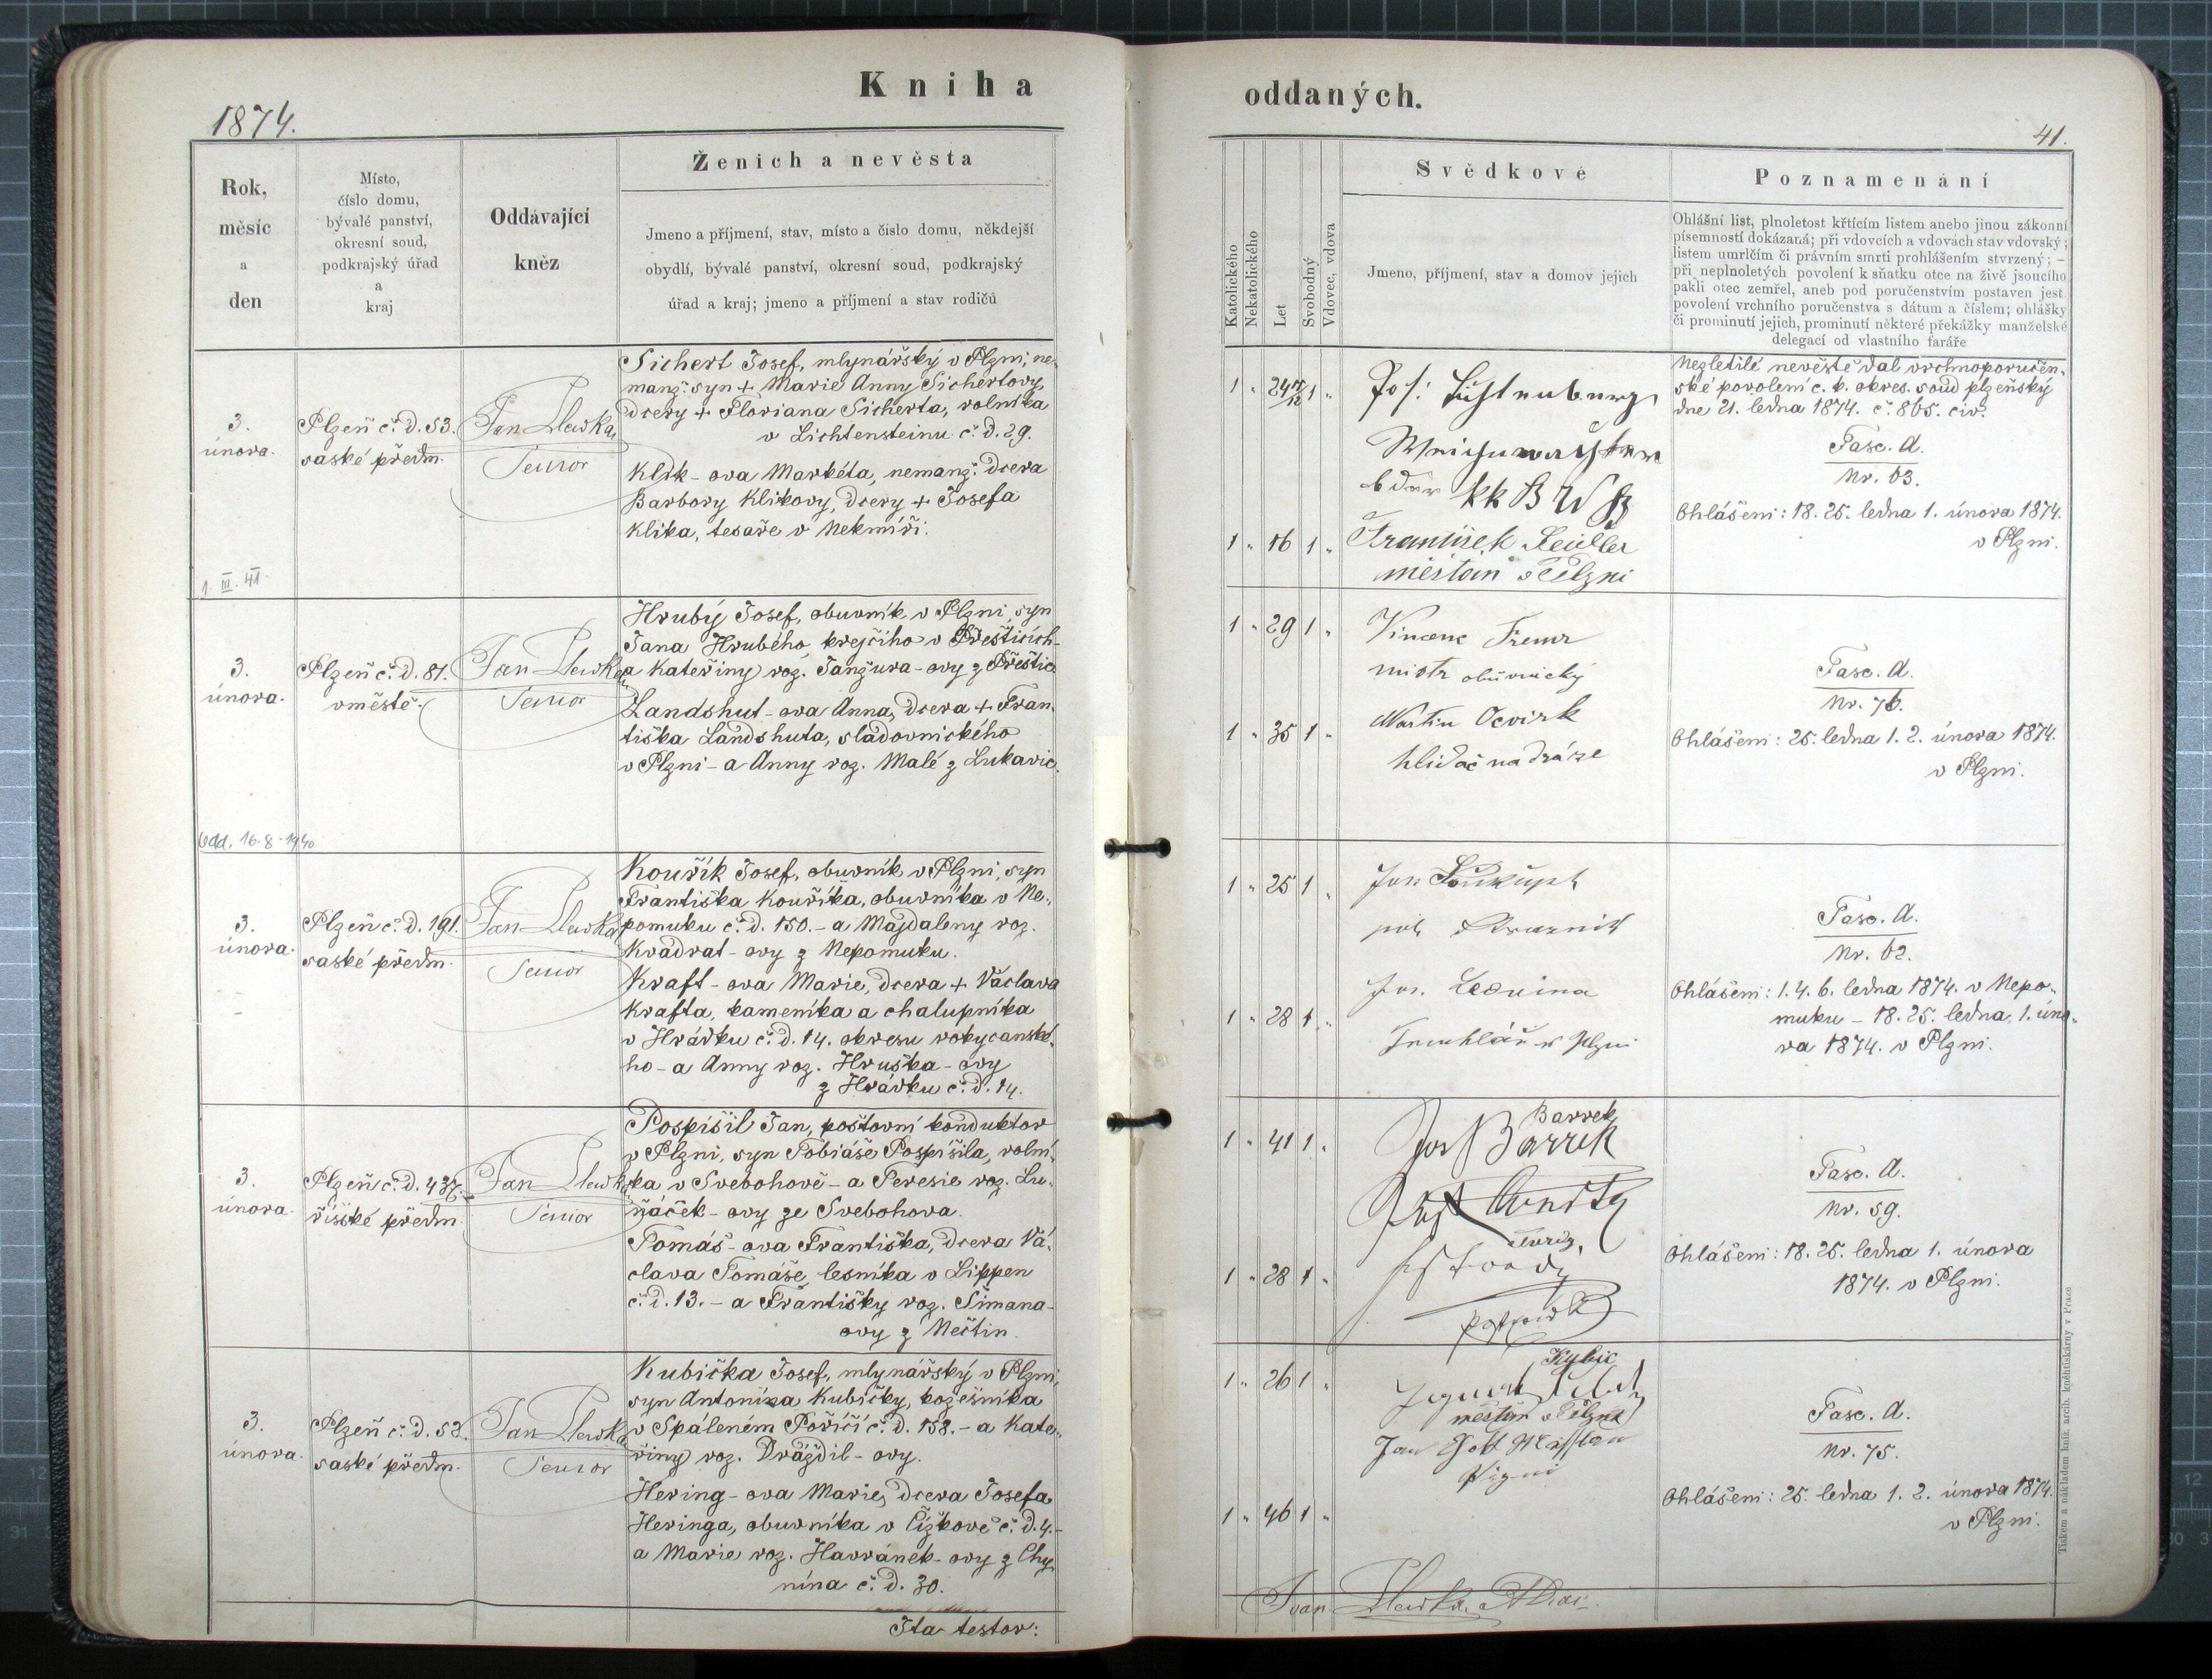 Kniha
1874.
Rok,
měsíc
a
den
Místo,
číslo domu,
bývalé panství,
okresní soud,
podkrajský úřad
a
kraj
Oddávající
kněz
Ženich a nevěsta
Jmeno a příjmení, stav, místo a číslo domu, někdejší
obydlí, bývalé panství, okresní soud, podkrajský
úřad a kraj; jmeno a příjmení a stav rodičů
3.
února.
Plzeň č. d. 53.
saské předm.
Jan
Senior
Sichert Josef, mlynářský v Plzni, ne-
manž. syn + Marie Anny Sichertovy,
dcery + Floriana Sicherta, rolníka
v Lichtensteinu č. d. 29.
Klik-ova Markéta, nemanž. dcera
Barbory Klikovy, dcery + Josefa
Klika, tesaře v Nekmíři.
1. III. 41.
3.
února.
Plzeň č. d. 81.
v městě.
Jan
Senior
Hrubý Josef, obuvník v Plzni, syn
Jana Hrubého, krejčího v Přešticích-
a Kateřiny roz. Janžura-ovy z Přeštic
Landshut-ova Anna, dcera + Fran-
tiška Landshuta, sladovnického
v Plzni - a Anny roz. Malé z Lukavic.
Odd. 16.8.1940
3.
února.
Plzeň č. d. 191.
saské předm.
Jan
Senior
Kouřík Josef, obuvník v Plzni, syn
Františka Kouříka, obuvníka v Ne-
pomuku č. d. 150. - a Majdaleny roz.
Kvadrat-ovy z Nepomuku.
Kraft-ova Marie, dcera + Václava
Krafta, kameníka a chalupníka
v Hrádku č. d. 14. okresu rokycanské-
ho - a Anny roz. Hruška-ovy
z Hrádku č. d. 14.
3.
února.
Plzeň č. d. 437.
říšské předm.
Jan
Senior
Pospíšil Jan, poštovní konduktor
v Plzni, syn Tobiáše Pospíšila, rolní-
ka v Svebohově - a Teresie roz. Lu-
ňáček-ovy ze Svebohova.
Tomáš-ova Františka, dcera Vá-
clava Tomáše, lesníka v Lippen
č. d. 13. - a Františky roz. Šimana-
ovy z Nečtin.
3.
února.
Plzeň č. d. 52.
saské předm.
Jan
Senior
Kubička Josef, mlynářský v Plzni,
syn Antonína Kubičky, kožešníka
v Spáleném Poříčí č. d. 158. - a Kate-
řiny roz. Dráždil-ovy.
Hering-ova Marie, dcera Josefa
Heringa, obuvníka v Čížkově č. d. 4. -
a Marie roz. Havránek-ovy z Chy-
nína č. d. 30.
Ita testor:
oddaných.
41.
Katolického
Nekatolického
Let
Svobodný
Vdovec, vdova
Svědkové
Jmeno, příjmení, stav a domov jejich
Poznamenání
Ohlášní list, plnoletost křtícím listem anebo jinou zákonní
písemností dokázaná; při vdovcích a vdovách stav vdovský
listem umrlčím či právním smrti prohlášením stvrzený; –
při neplnoletých povolení k sňatku otce na živě jsoucího
pakli otec zemřel, aneb pod poručenstvím postaven jest
povolení vrchního poručenstva s dátum a číslem; ohlášky
či prominutí jejich, prominutí některé překážky manželské
delegací od vlastního faráře
1 " 24 1 "
kk
1 " 16 1 "
František Seidler
měšťan v Plzni
Nezletilé nevěstě dal vrchnoporučen-
ské povolení c. k. okres. soud plzeňský
dne 21. ledna 1874. č. 865. civ.
Fasc. A.
Nr. 63.
Ohlášeni: 18. 25. ledna 1. února 1874.
v Plzni.
1 " 29 1 "
Vincenc
mistr obuvnický
1 " 35 1 "
Martin
hlídač na dráze
Fasc. A.
Nr. 76.
Ohlášeni: 25. ledna 1. 2. února 1874.
v Plzni.
1 " 25 1 "
Jan Soukup
1 " 28 1 "
Jos.
Truhlář v Plzni
Fasc. A.
Nr. 62.
Ohlášeni: 1. 4. 6. ledna 1874. v Nepo-
muku - 18. 25. ledna, 1. úno-
ra 1874. v Plzni.
Barrek
1 " 41 1 "
Jos Barrek
1 " 28 1 "
Fasc. A.
Nr. 59.
Ohlášeni: 18. 25. ledna 1. února
1874. v Plzni.
1 " 26 1 "
měšťan v Plzni
Jan
1 " 46 1 "
Fasc. A.
Nr. 75.
Ohlášeni: 25. ledna 1. 2. února 1874.
v Plzni.
Tiskem a nákladem kníž. arcib. kněhtiskárny v Praze